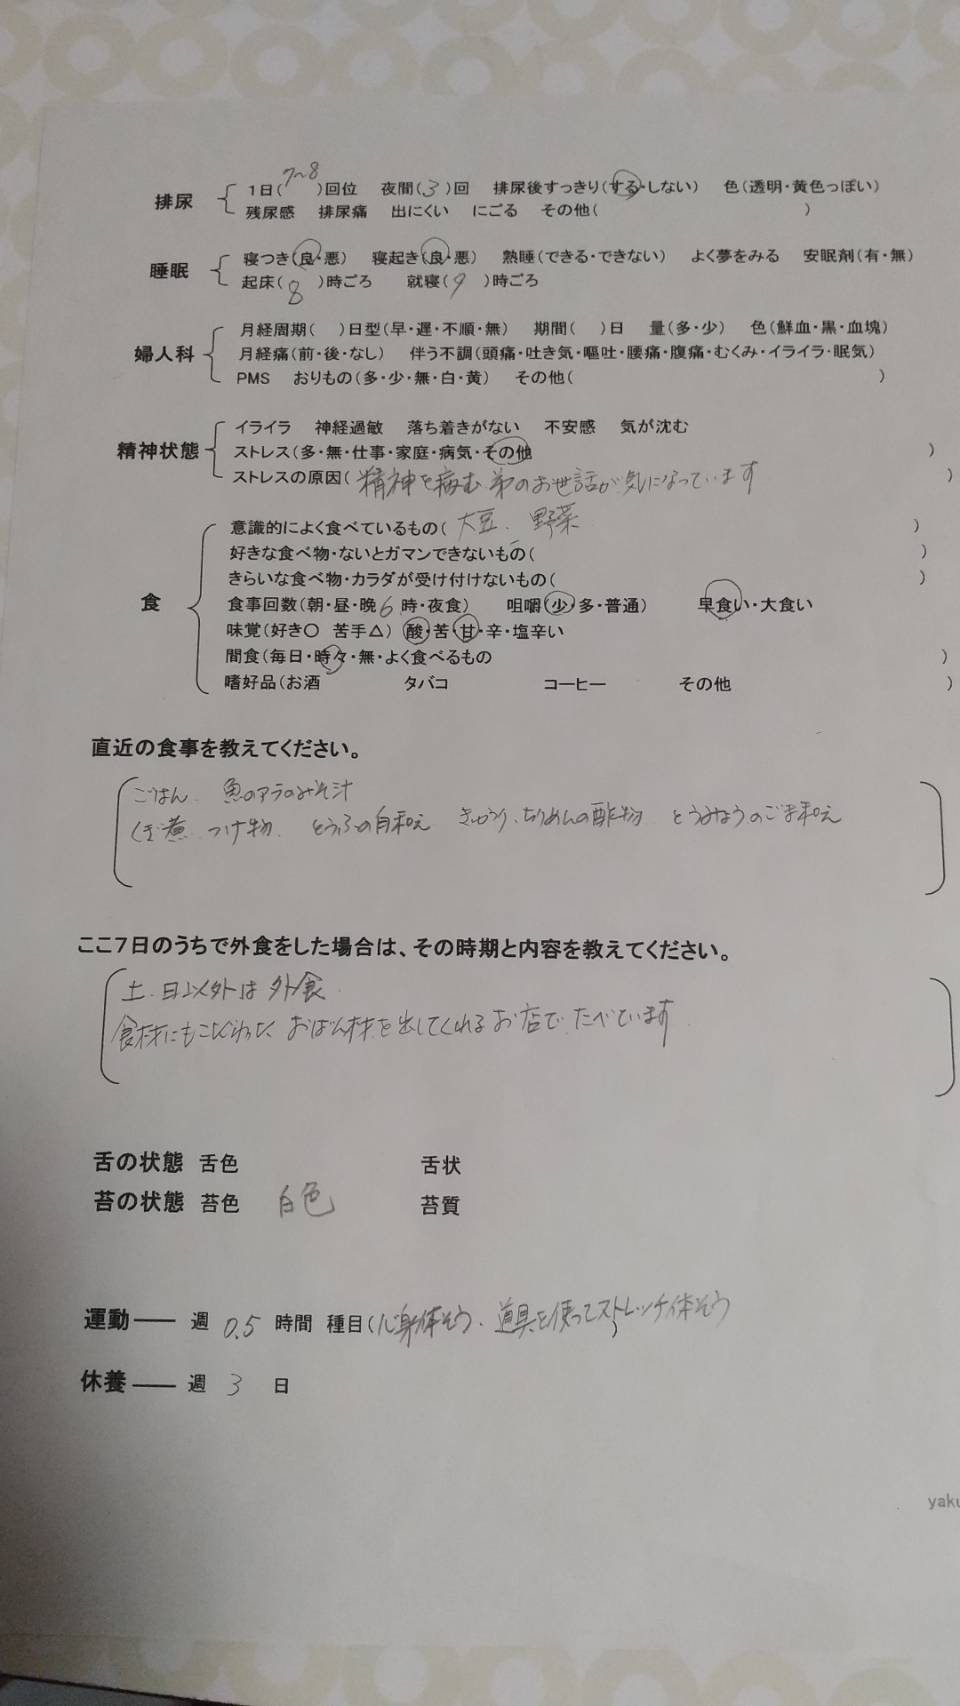 排尿
1日(7〜8)回位 夜間(3)回 排尿後すっきり(する・しない) 色(透明・黄色っぽい)
残尿感 排尿痛 出にくい にごる その他( )
睡眠
寝つき(良・悪) 寝起き(良・悪) 熟睡(できる・できない) よく夢をみる 安眠剤(有・無)
起床(8)時ごろ 就寝(9)時ごろ
婦人科
月経周期( )日型(早・遅・不順・無) 期間( )日 量(多・少) 色(鮮血・黒・血塊)
月経痛(前・後・なし) 伴う不調(頭痛・吐き気・嘔吐・腰痛・腹痛・むくみ・イライラ・眠気)
PMS おりもの(多・少・無・白・黄) その他( )
精神状態
イライラ 神経過敏 落ち着きがない 不安感 気が沈む
ストレス(多・無・仕事・家庭・病気・その他 )
ストレスの原因(精神を病む弟のお世話が気になっています )
食
意識的によく食べているもの(大豆、野菜 )
好きな食べ物・ないとガマンできないもの( )
きらいな食べ物・カラダが受け付けないもの( )
食事回数(朝・昼・晩6時・夜食) 咀嚼(少・多・普通) 早食い・大食い
味覚(好き〇 苦手△) 酸・苦・甘・辛・塩辛い
間食(毎日・時々・無・よく食べるもの )
嗜好品(お酒 タバコ コーヒー その他 )
直近の食事を教えてください。
ごはん、魚のアラのみそ汁
くぎ煮、つけ物、とうふの白和え きゅうり、ちりめんの酢物 とうみょうのごま和え
ここ7日のうちで外食をした場合は、その時期と内容を教えてください。
土、日以外は外食
食材にもこだわった おばん材を出してくれるお店で たべています
舌の状態 舌色 舌状
苔の状態 苔色 白色 苔質
運動―― 週 0.5 時間 種目(心身体そう、道具を使ってストレッチ体そう
休養―― 週 3 日
yaku